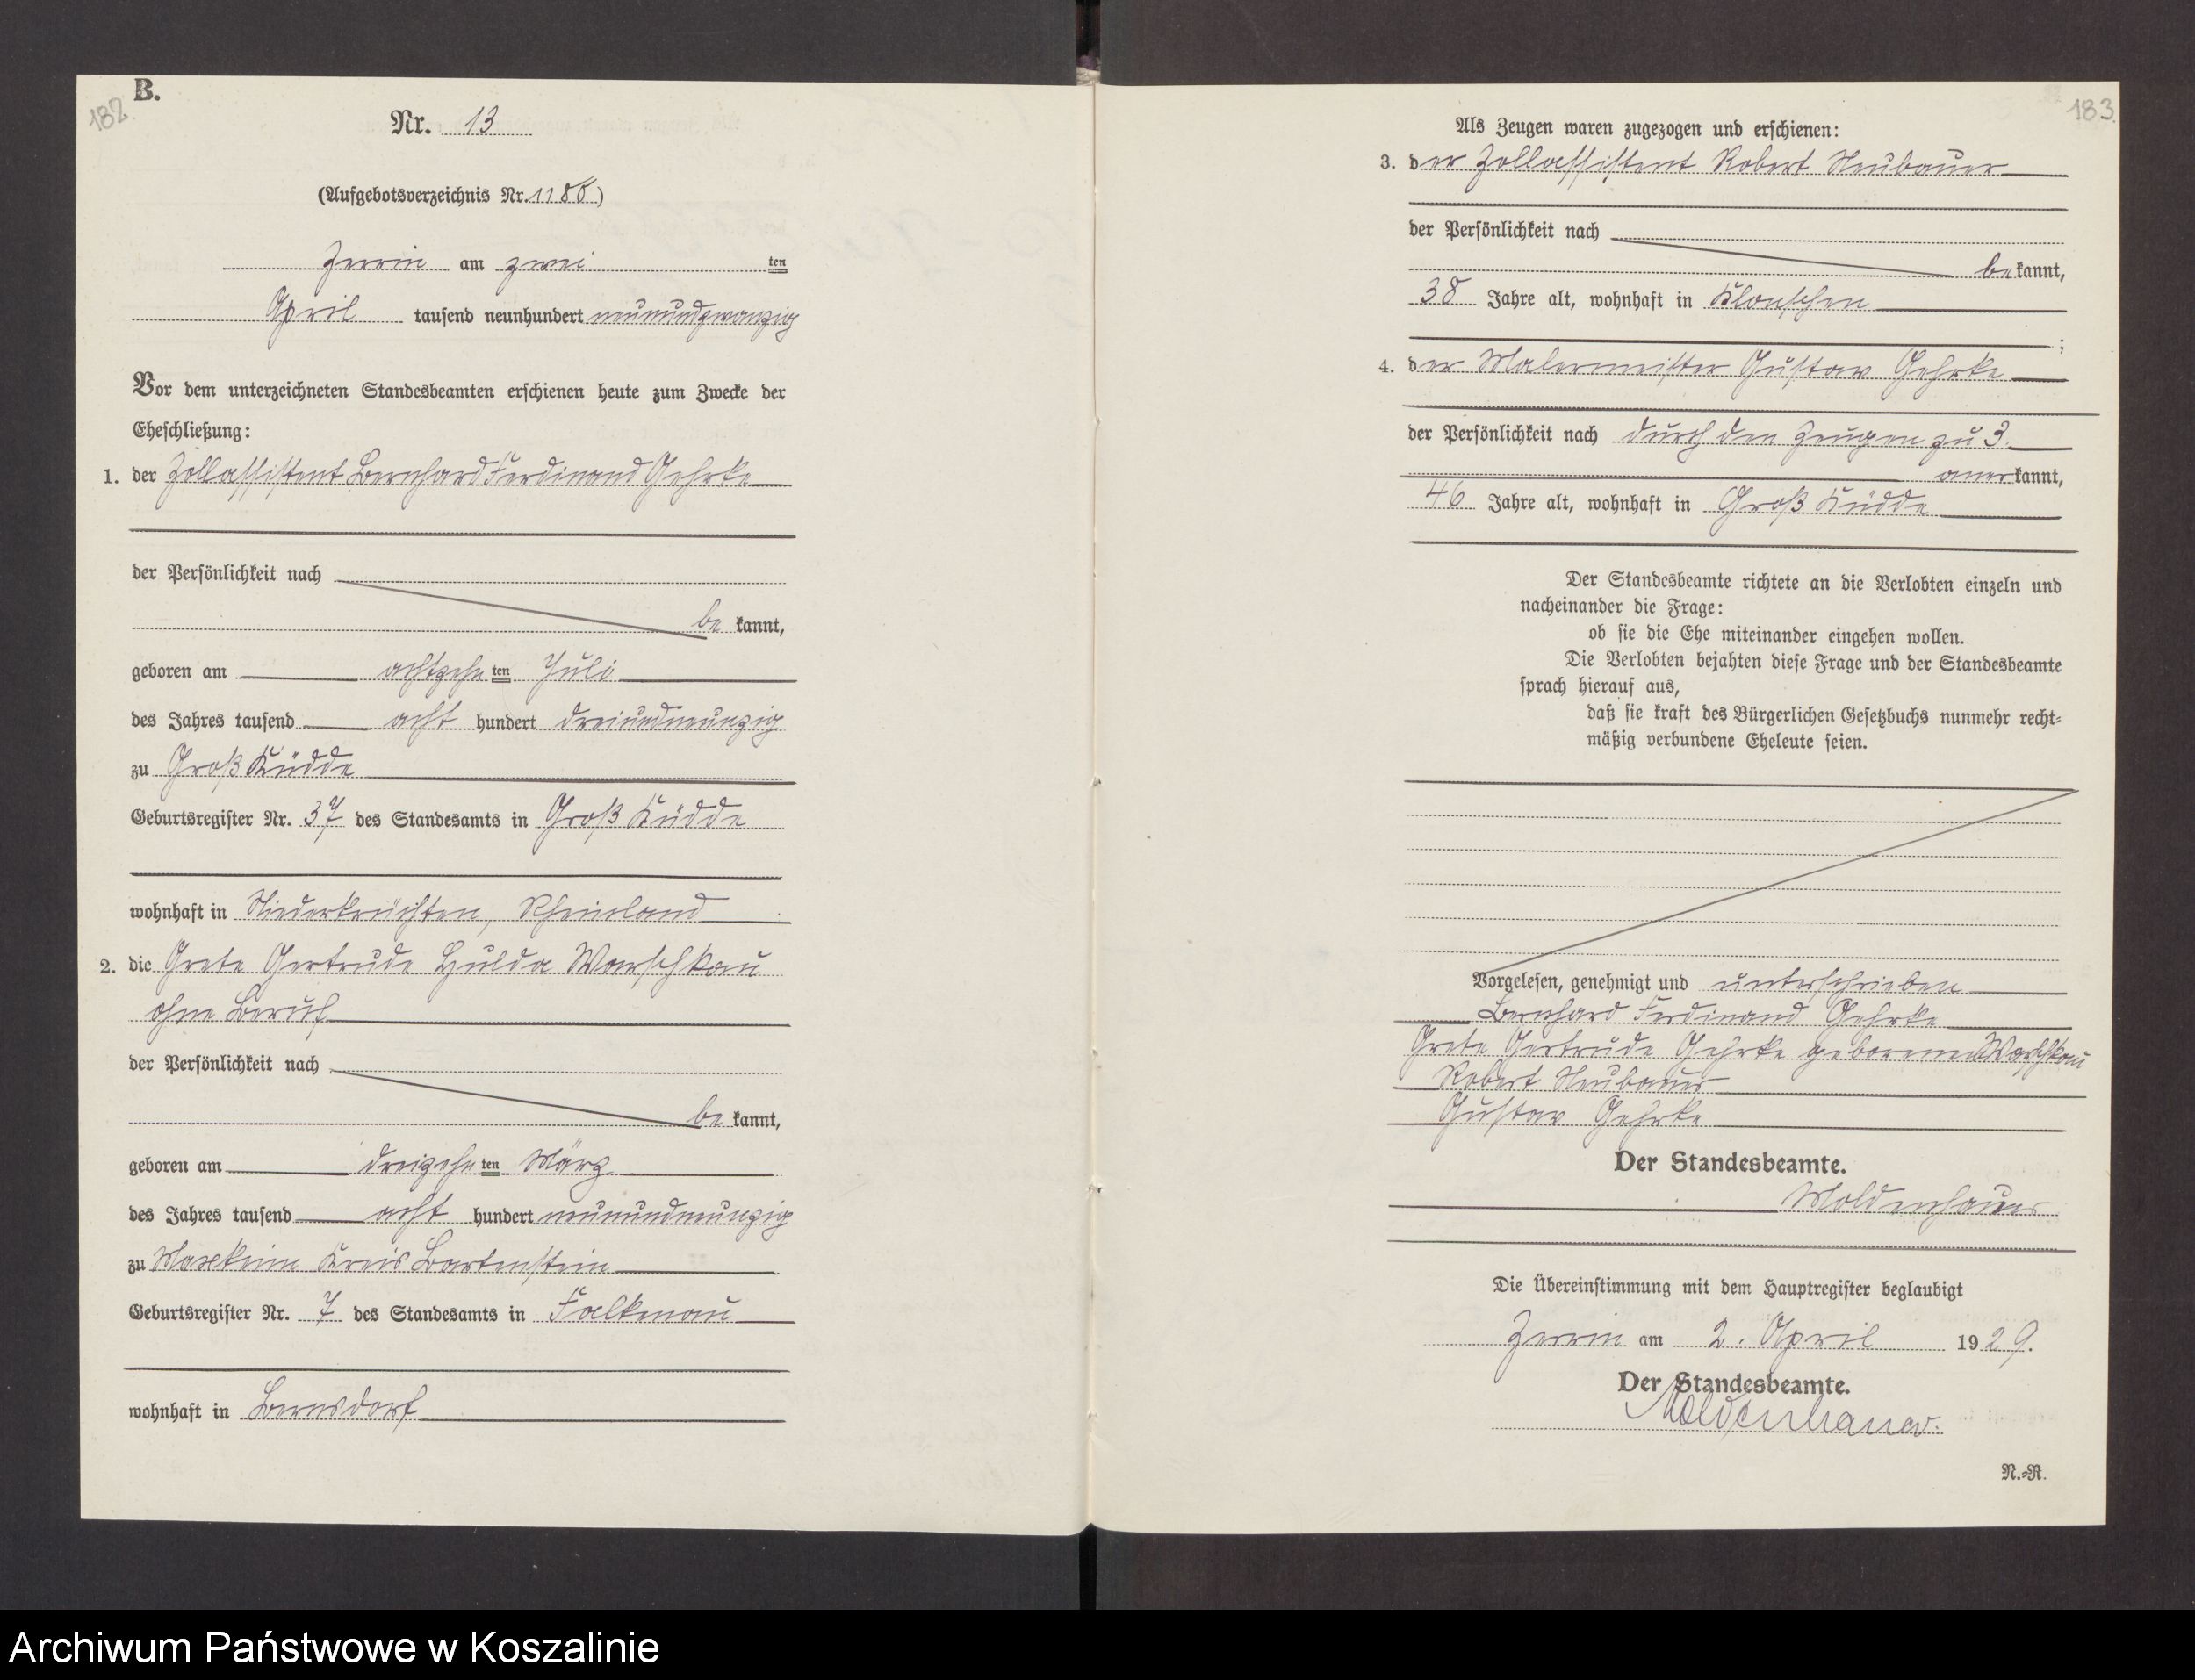 B.
182
Nr. 13
(Aufgebotsverzeichnis Nr. 1186)
Zerrin am zwei ten
April tausend neunhundert neunundzwanzig
Vor dem unterzeichneten Standesbeamten erschienen heute zum Zwecke der
Eheschließung:
1. der Zollassistent Bernhard Ferdinand Gehrke
der Persönlichkeit nach
be kannt,
geboren am achtzehn ten Juli
des Jahres tausend acht hundert dreiundneunzig
zu Groß Küdde
Geburtsregister Nr. 37 des Standesamts in Groß Küdde
wohnhaft in Niederkrüchten, Rheinland
2. die Grete Gertrude Hulda Warschkau
ohne Beruf
der Persönlichkeit nach
be kannt,
geboren am dreizehn ten März
des Jahres tausend acht hundert neunundneunzig
zu Maxkeim Kreis Bartenstein
Geburtsregister Nr. 7 des Standesamts in Falkenau
wohnhaft in Bernsdorf
183
Als Zeugen waren zugezogen und erschienen:
3. der Zollassistent Robert Neubauer
der Persönlichkeit nach
be kannt,
38 Jahre alt, wohnhaft in Klonschen
;
4. der Malermeister Gustav Gehrke
der Persönlichkeit nach durch den Zeugen zu 3.
aner kannt,
46 Jahre alt, wohnhaft in Groß Küdde
Der Standesbeamte richtete an die Verlobten einzeln und
nacheinander die Frage:
ob sie die Ehe miteinander eingehen wollen.
Die Verlobten bejahten diese Frage und der Standesbeamte
sprach hierauf aus,
daß sie kraft des Bürgerlichen Gesetzbuchs nunmehr recht-
mäßig verbundene Eheleute seien.
Vorgelesen, genehmigt und unterschrieben
Bernhard Ferdinand Gehrke
Grete Gertrude Gehrke geborene Warschkau
Robert Neubauer
Gustav Gehrke
Der Standesbeamte.
Moldenhauer
Die Übereinstimmung mit dem Hauptregister beglaubigt
Zerrin am 2. April 1929.
Der Standesbeamte.
Moldenhauer.
N.-R.
Archiwum Państwowe w Koszalinie